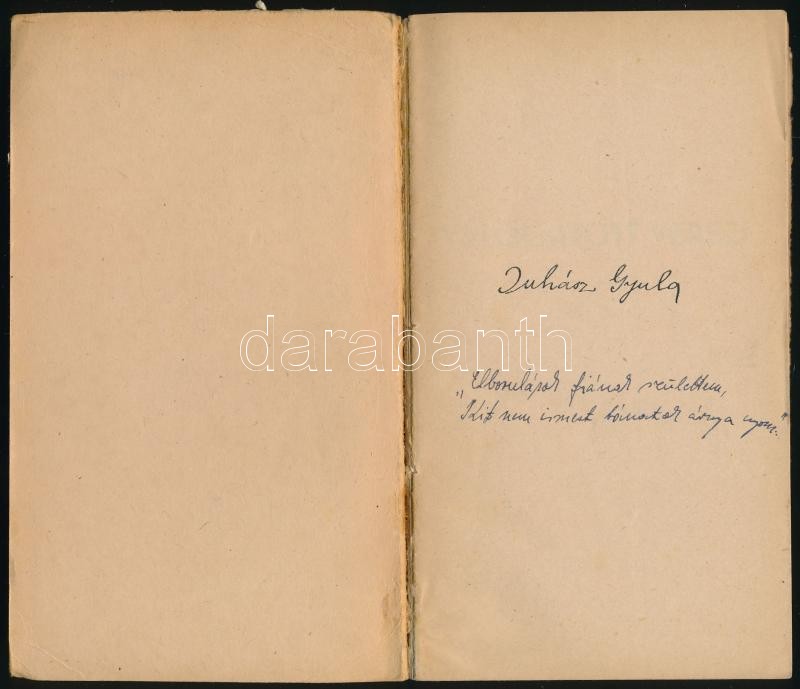 Juhász Gyula
darabanth
„Elborulások fiának születtem,
Kit nem ismert bánatok árnya nyom."